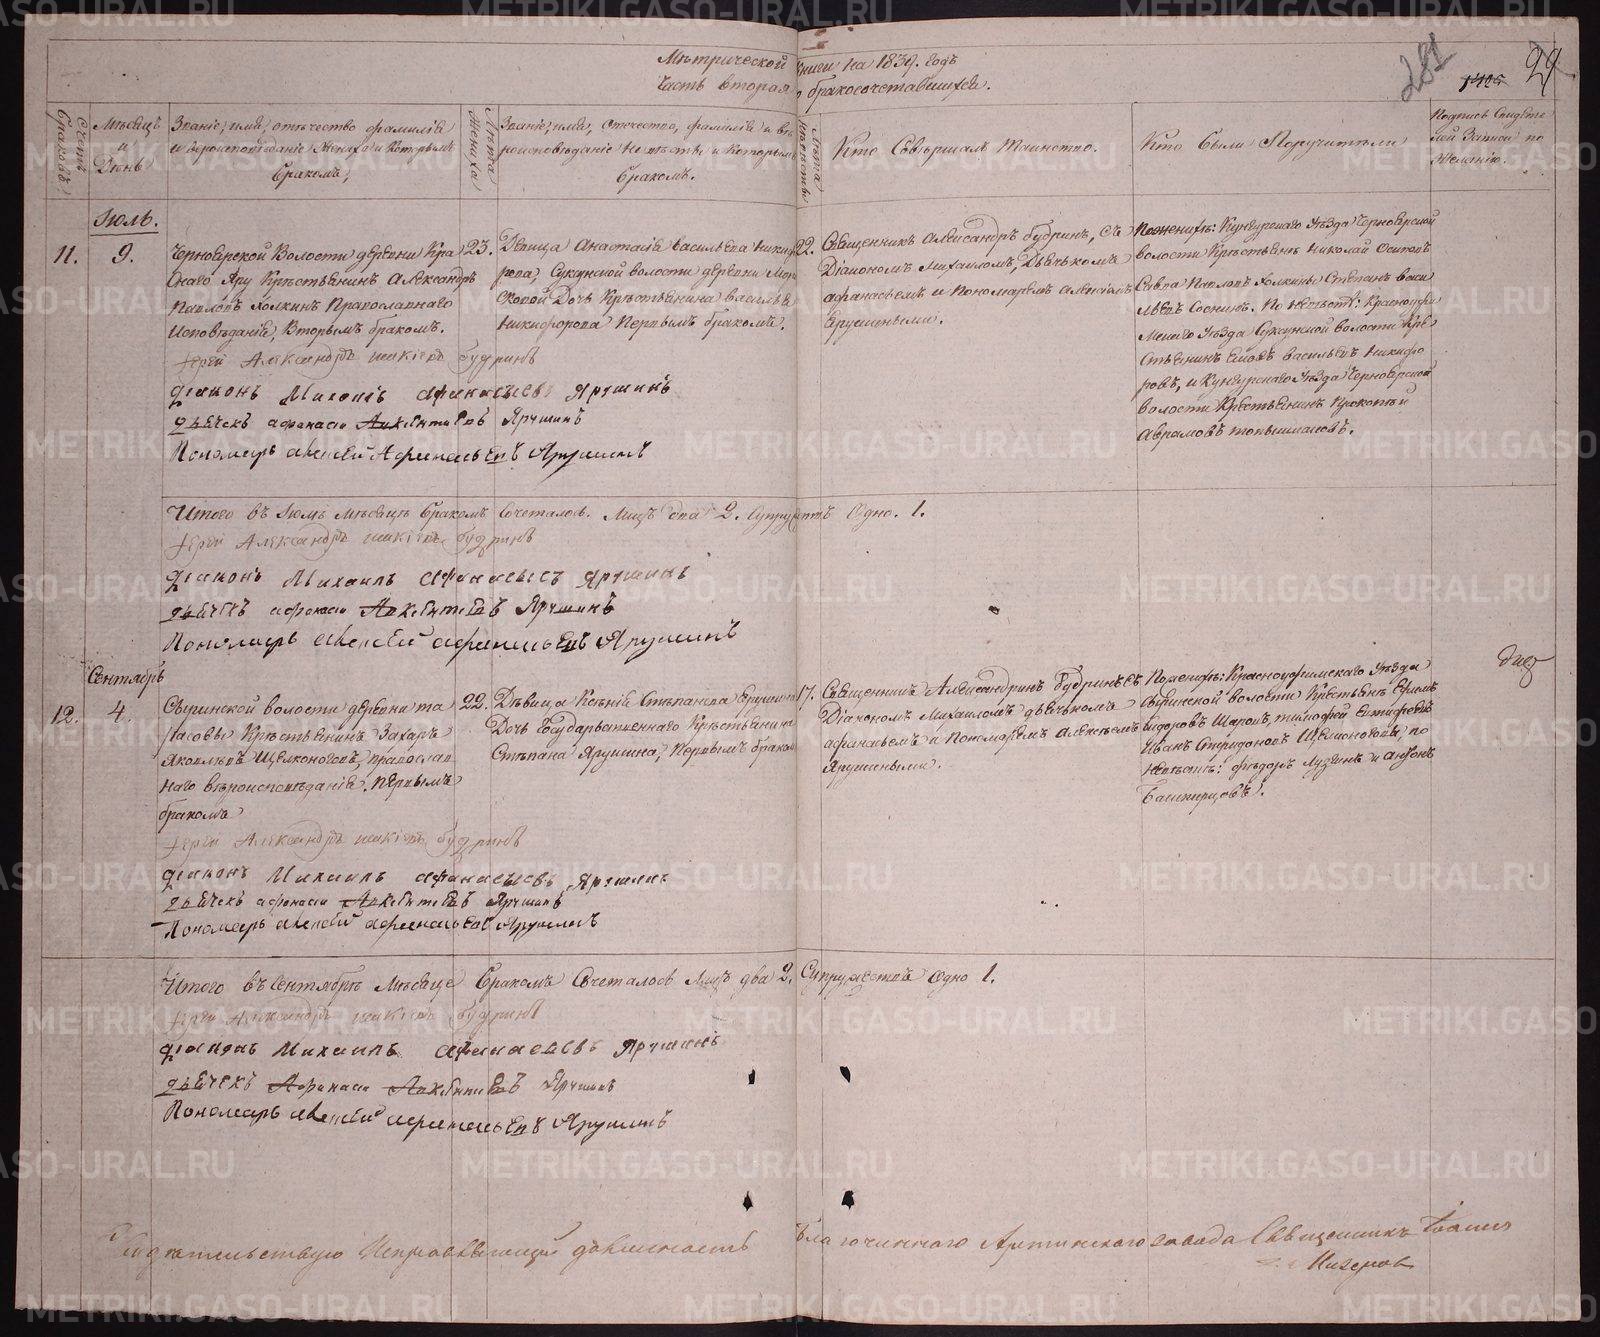 Мѣтрической книги на 1839. годъ
Часть вторая о бракосочетавшихся.
281
29
Счетъ браковъ
Мѣсяцъ и День
Званіе, имя, отечество фамилія и вѣроисповѣданіе Жениха и которымъ бракомъ,
Лѣта Жениха
Званіе, имя, отечество, фамилія и вѣроисповѣданіе Невѣсты и которымъ бракомъ.
Лѣта Невѣсты
Кто Совѣршалъ Таинство.
Кто были Поручители
Подпись Свидѣтелей Записи по желанію.
Іюль.
11.
9.
Черноярской Волости деревни Краснаго Яру Крестьянинъ Александръ
Павловъ Холкинъ Православнаго
Исповѣданія, Вторымъ бракомъ.
23.
Дѣвица Анастасія Васильева Никифорова, Суксунской волости деревни
Дочь Крестьянина Василья
Никифорова Первымъ бракомъ.
22.
Священникъ Александръ Будринъ, съ
Діакономъ Михаиломъ, Дьячькомъ
Афанасьемъ и Пономаремъ Алексѣемъ
Ярушиными.
По женихѣ: Кунгурскаго Уѣзда Черноярской
волости Крестьянинъ Николай Осиповъ
Савва Павловъ Холкины Степанъ Васильевъ Сосникъ. По невѣстѣ: Красноуфимскаго Уѣзда Суксунской волости Крестьянинъ Васильевъ Никифоровъ, и Кунгурскаго Уѣзда Черноярской
волости Крестьянинъ Прокопей
Абрамовъ
Іерей Александръ Будринъ
Діаконъ Михаилъ Афанасьевъ Ярушинъ
Дьячекъ Афанасий Ярушинъ
Пономарь Алексѣй Афанасьевъ Ярушинъ
Итого въ Іюлѣ мѣсяцѣ бракомъ Сочеталось. Лицъ два 2. Супружествъ Одно. 1.
Іерей Александръ Будринъ
Діаконъ Михаилъ Афанасьевъ Ярушинъ
Дьячекъ Афанасий Ярушинъ
Пономарь Алексѣй Афанасьевъ Ярушинъ
Сентябрь
12.
4.
волости деревни
Крестьянинъ Захаръ
Яковлевъ Щелконоговъ, православнаго вѣроисповѣданія. Первымъ
бракомъ
22.
Дѣвица Ксѣнія Стѣпанова Ярушина
Дочь Государственнаго Крестьянина
Стѣпана Ярушина, Первымъ бракомъ
17.
Священникъ Александръ Будринъ съ
Діакономъ Михаиломъ дьячькомъ
Афанасьемъ и Пономаремъ Алексѣемъ
Ярушиными.
По женихѣ: Красноуфимскаго Уѣзда
волости Крестьяне Ефимъ
Сидоровъ Тимофей
Иванъ Спиридоновъ Щелконоговы, по
Невѣстѣ: Фѣдоръ Лузинъ и Антонъ
Башкирцовъ.
Іерей Александръ Будринъ
Діаконъ Михаилъ Афанасьевъ Ярушинъ
Дьячекъ Афанасий Ярушинъ
Пономарь Алексѣй Афанасьевъ Ярушинъ
Итого въ Сентябрѣ Мѣсяце Бракомъ Сочеталось Лицъ два 2. Супружествъ Одно 1.
Іерей Александръ Будринъ
Діаконъ Михаилъ Афанасьевъ Ярушинъ
Дьячекъ Афанасий Ярушинъ
Пономарь Алексѣй Афанасьевъ Ярушинъ
должность Благочиннаго Артинскаго завода Священникъ Іоаннъ
METRIKI.GASO-URAL.RU